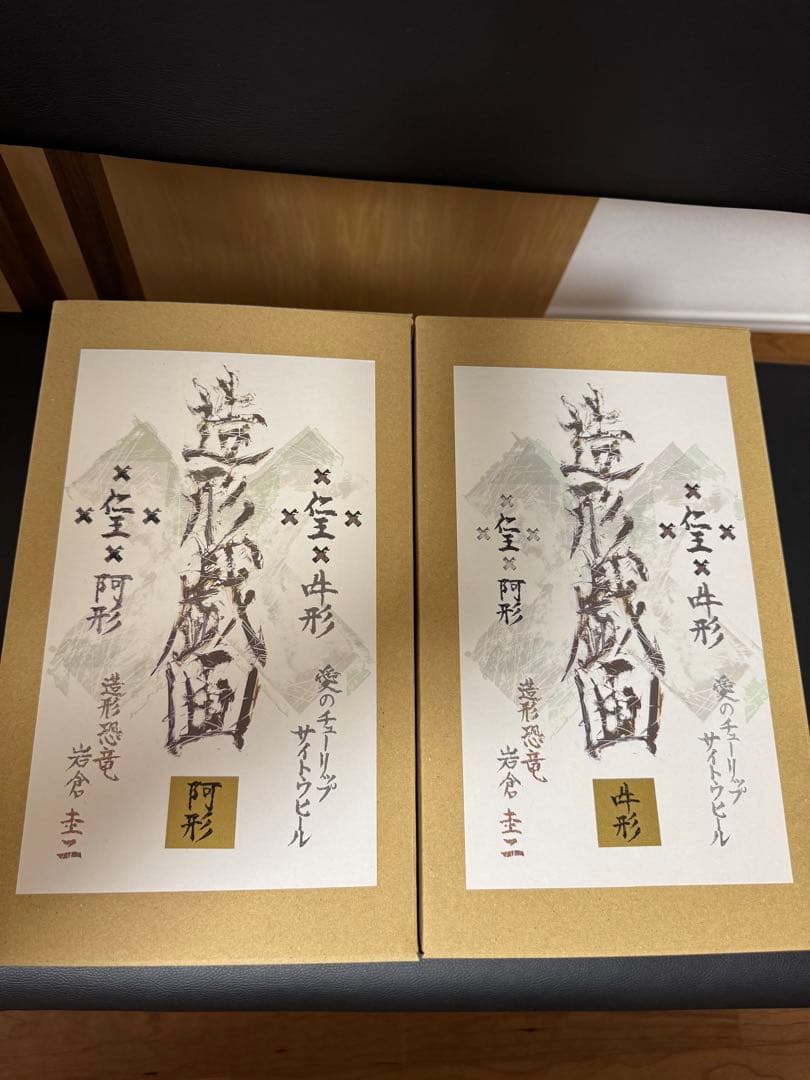 造形戯画
仁王
吽形
仁王
阿形
愛のチューリップ
サイトウヒール
造形恐竜
岩倉圭二
阿形
造形戯画
仁王
吽形
仁王
阿形
愛のチューリップ
サイトウヒール
造形恐竜
岩倉圭二
吽形